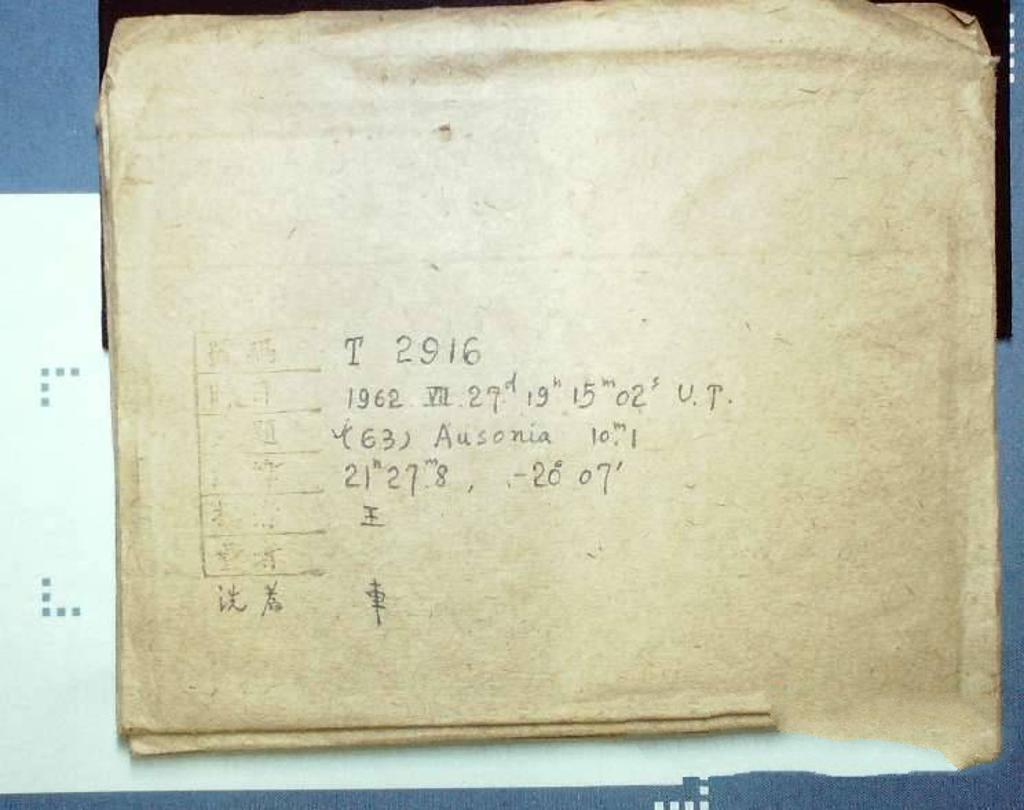 號碼 T 2916
日 1962 VII 27ᵈ 19ʰ 15ᵐ 02ˢ U.T.
題 (63) Ausonia 10ᵐ.1
21ʰ 27ᵐ.8, -20° 07′
王
洗者 車